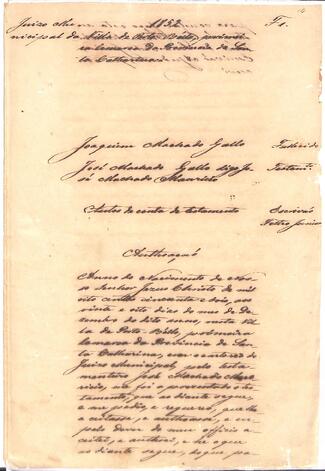 1852 F 1.
Juizo Mu-
nicipal da Villa de Porto Bello, primei-
ra Comarca da Provincia de San-
ta Catharina
Joaquim Machado Gallo Fallecido
José Machado Gallo digo Jo- Testamr.º
sé Machado Mauricio
Autos de conta de testamento Escrivão
Autuação
Anno do Nascimento de Nosso
Senhor Jezus Christo de mil
oito centos cincoenta e dois, aos
vinte e oito dias do mes de De-
zembro do dito anno, nesta Vil-
la de Porto Bello, primeira
Comarca da Provincia de San-
ta Catharina, em cartorio do
Juizo Municipal, pelo testa-
menteiro José Machado Mau-
ricio, me foi apresentado o tes-
tamento, que ao diante segue,
e me pedio, e requereo, que lhe
acceitasse, e autuasse, e eu
pelo dever do meu officio o
aceitei, e autuei, e he o que
ao diante segue, do que, pa-